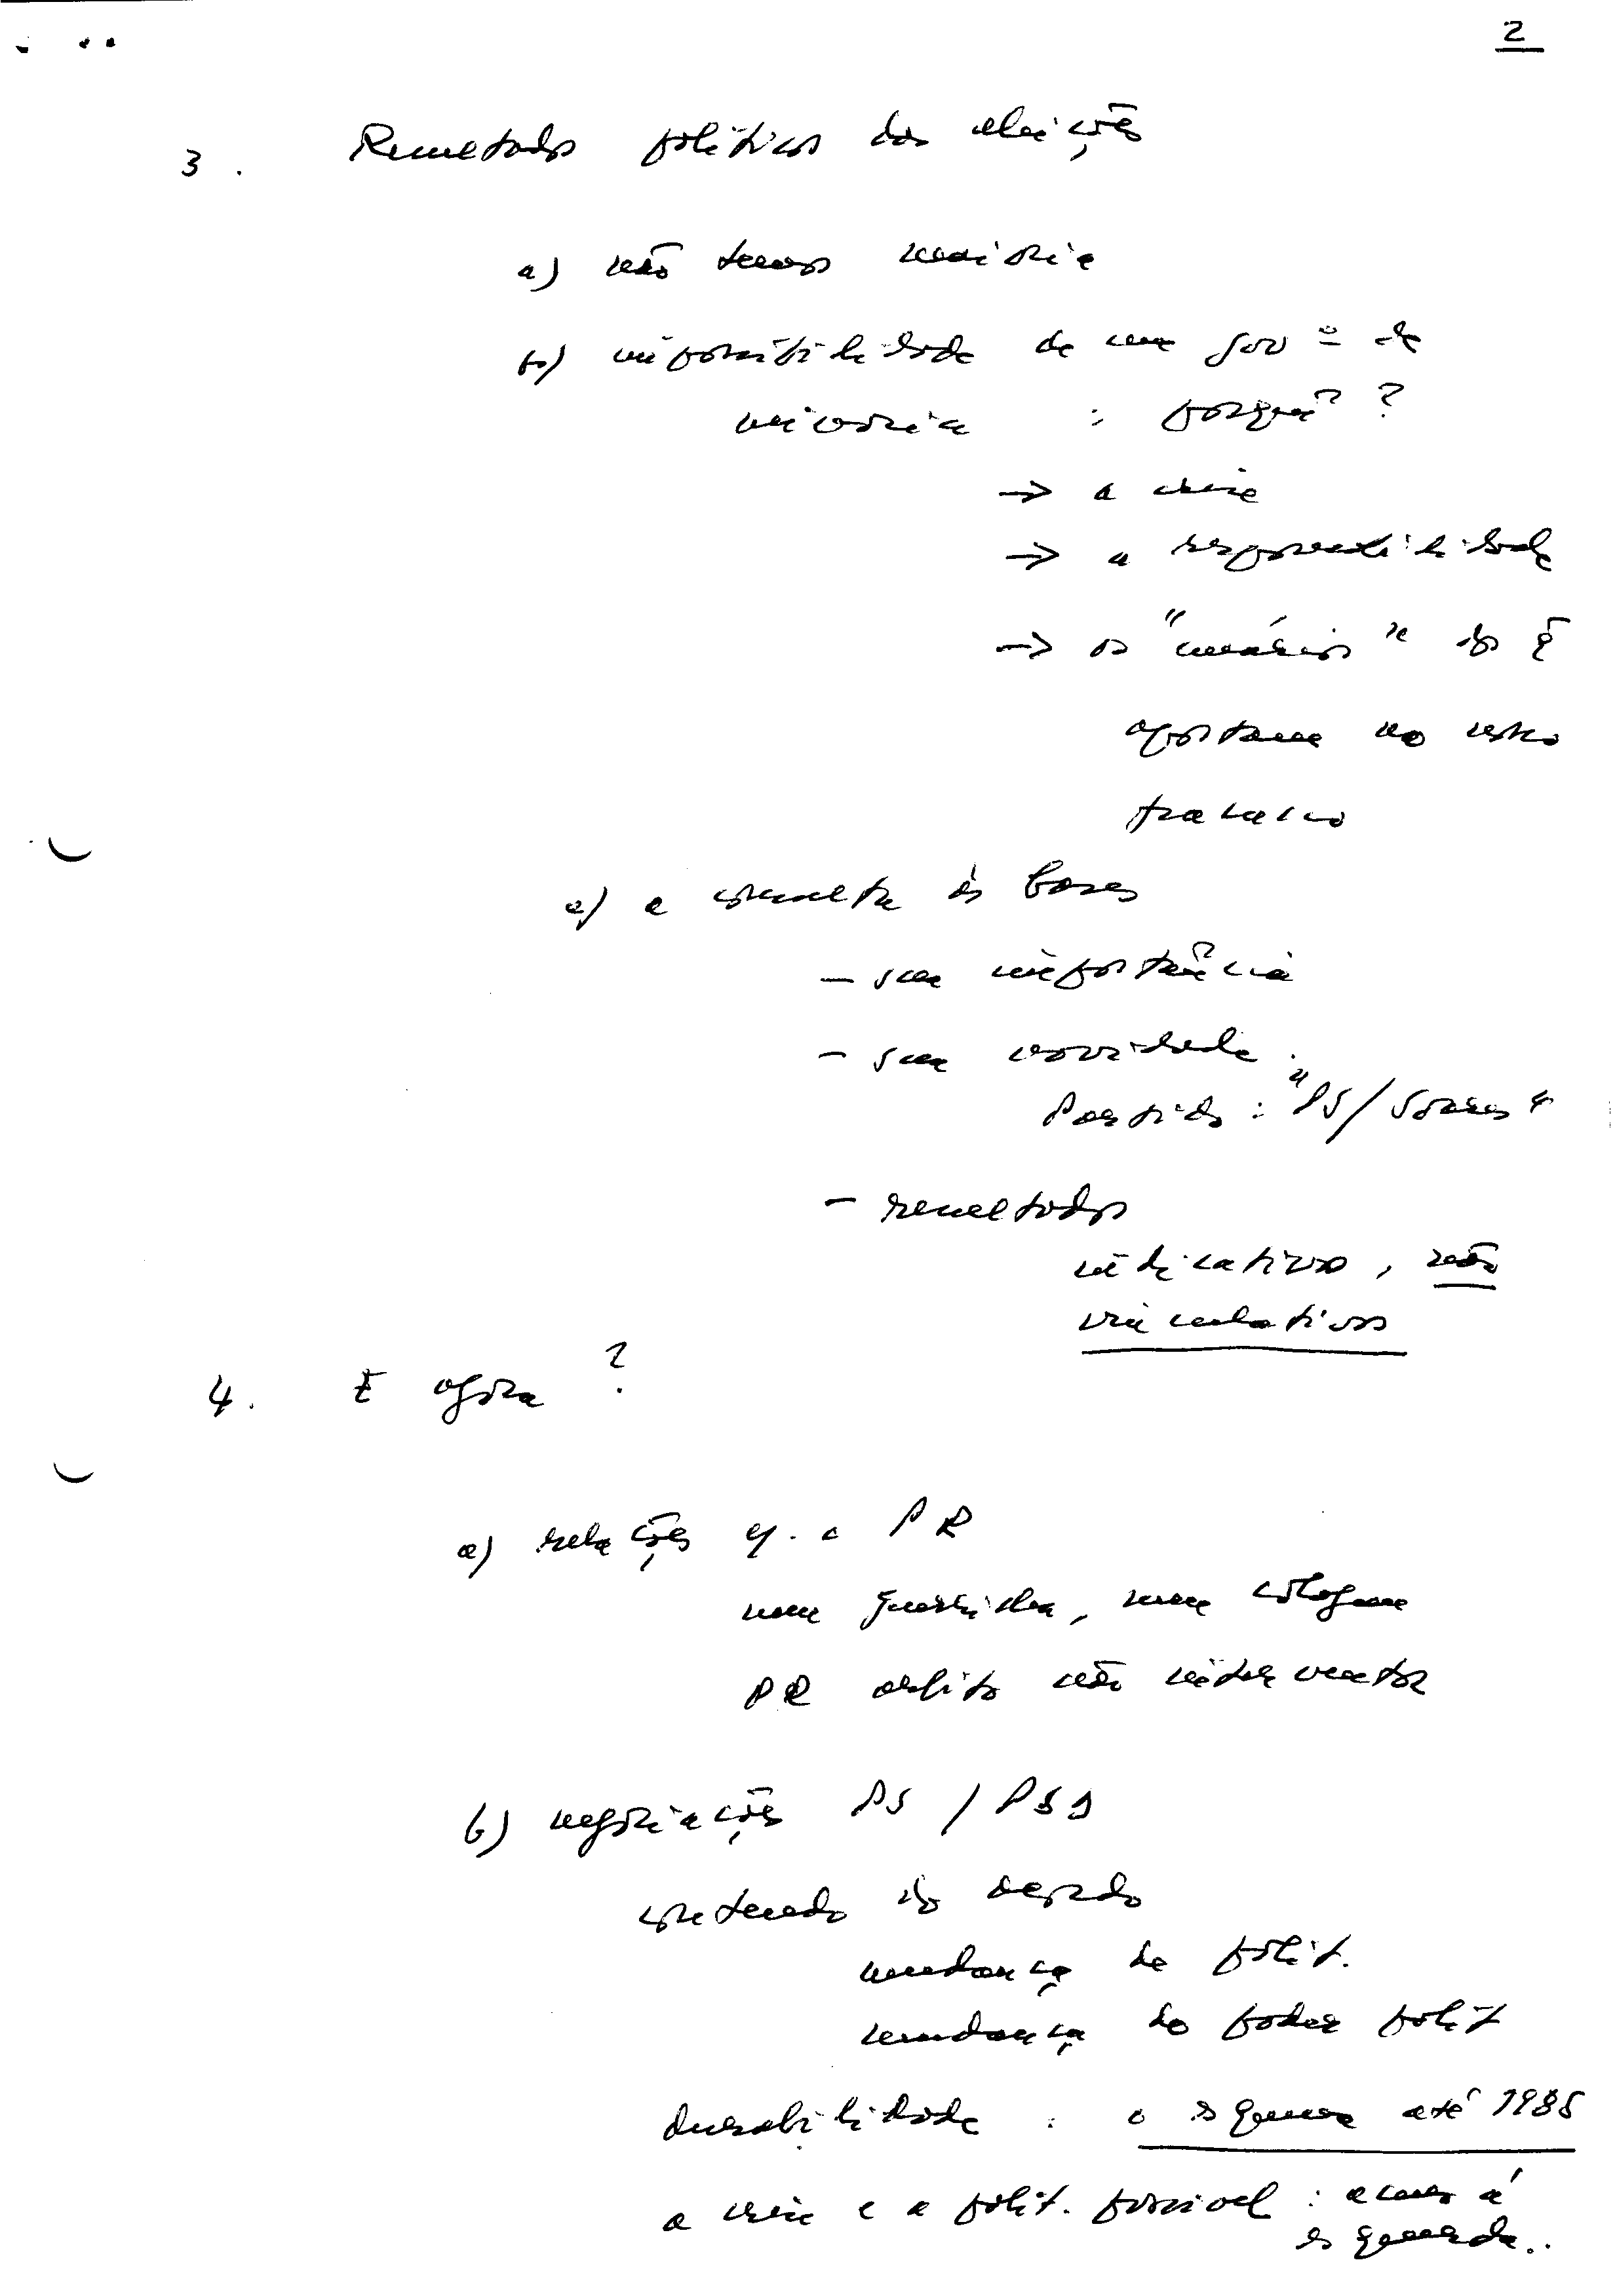 2
3. Resultados políticos das eleições
a) não temos maioria
b) impossibilidade de um gov º de
minoria : porquê ?
→ a crise
→ a responsabilidade
→ os " " do q̃
apostam no nosso
fracasso
c) a consulta às bases
- sua importância
- sua novidade.
Partido : "PS/Soares"
- resultados
indicativos, não
vinculativos
4. E agora ?
a) relações c. o PR
nem guerrilha, nem
PR árbitro não interventor
b) negociações PS / PSD
conteúdo do acordo
mudança de polít.
mudança do poder polít
durabilidade : o esquema até 1985
a crise e a polít. possível : acusar à
esquerda..